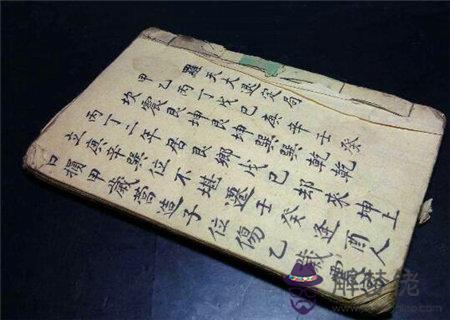 羅天大退定局
甲乙丙丁戊己庚辛壬癸
坎震艮坤艮坤巽巽乾乾
丙丁二年居艮鄉戊己却來坤上
立庚辛巽位不堪遷壬癸逢酉人
甲歲當造子位傷乙歲
解梦佬